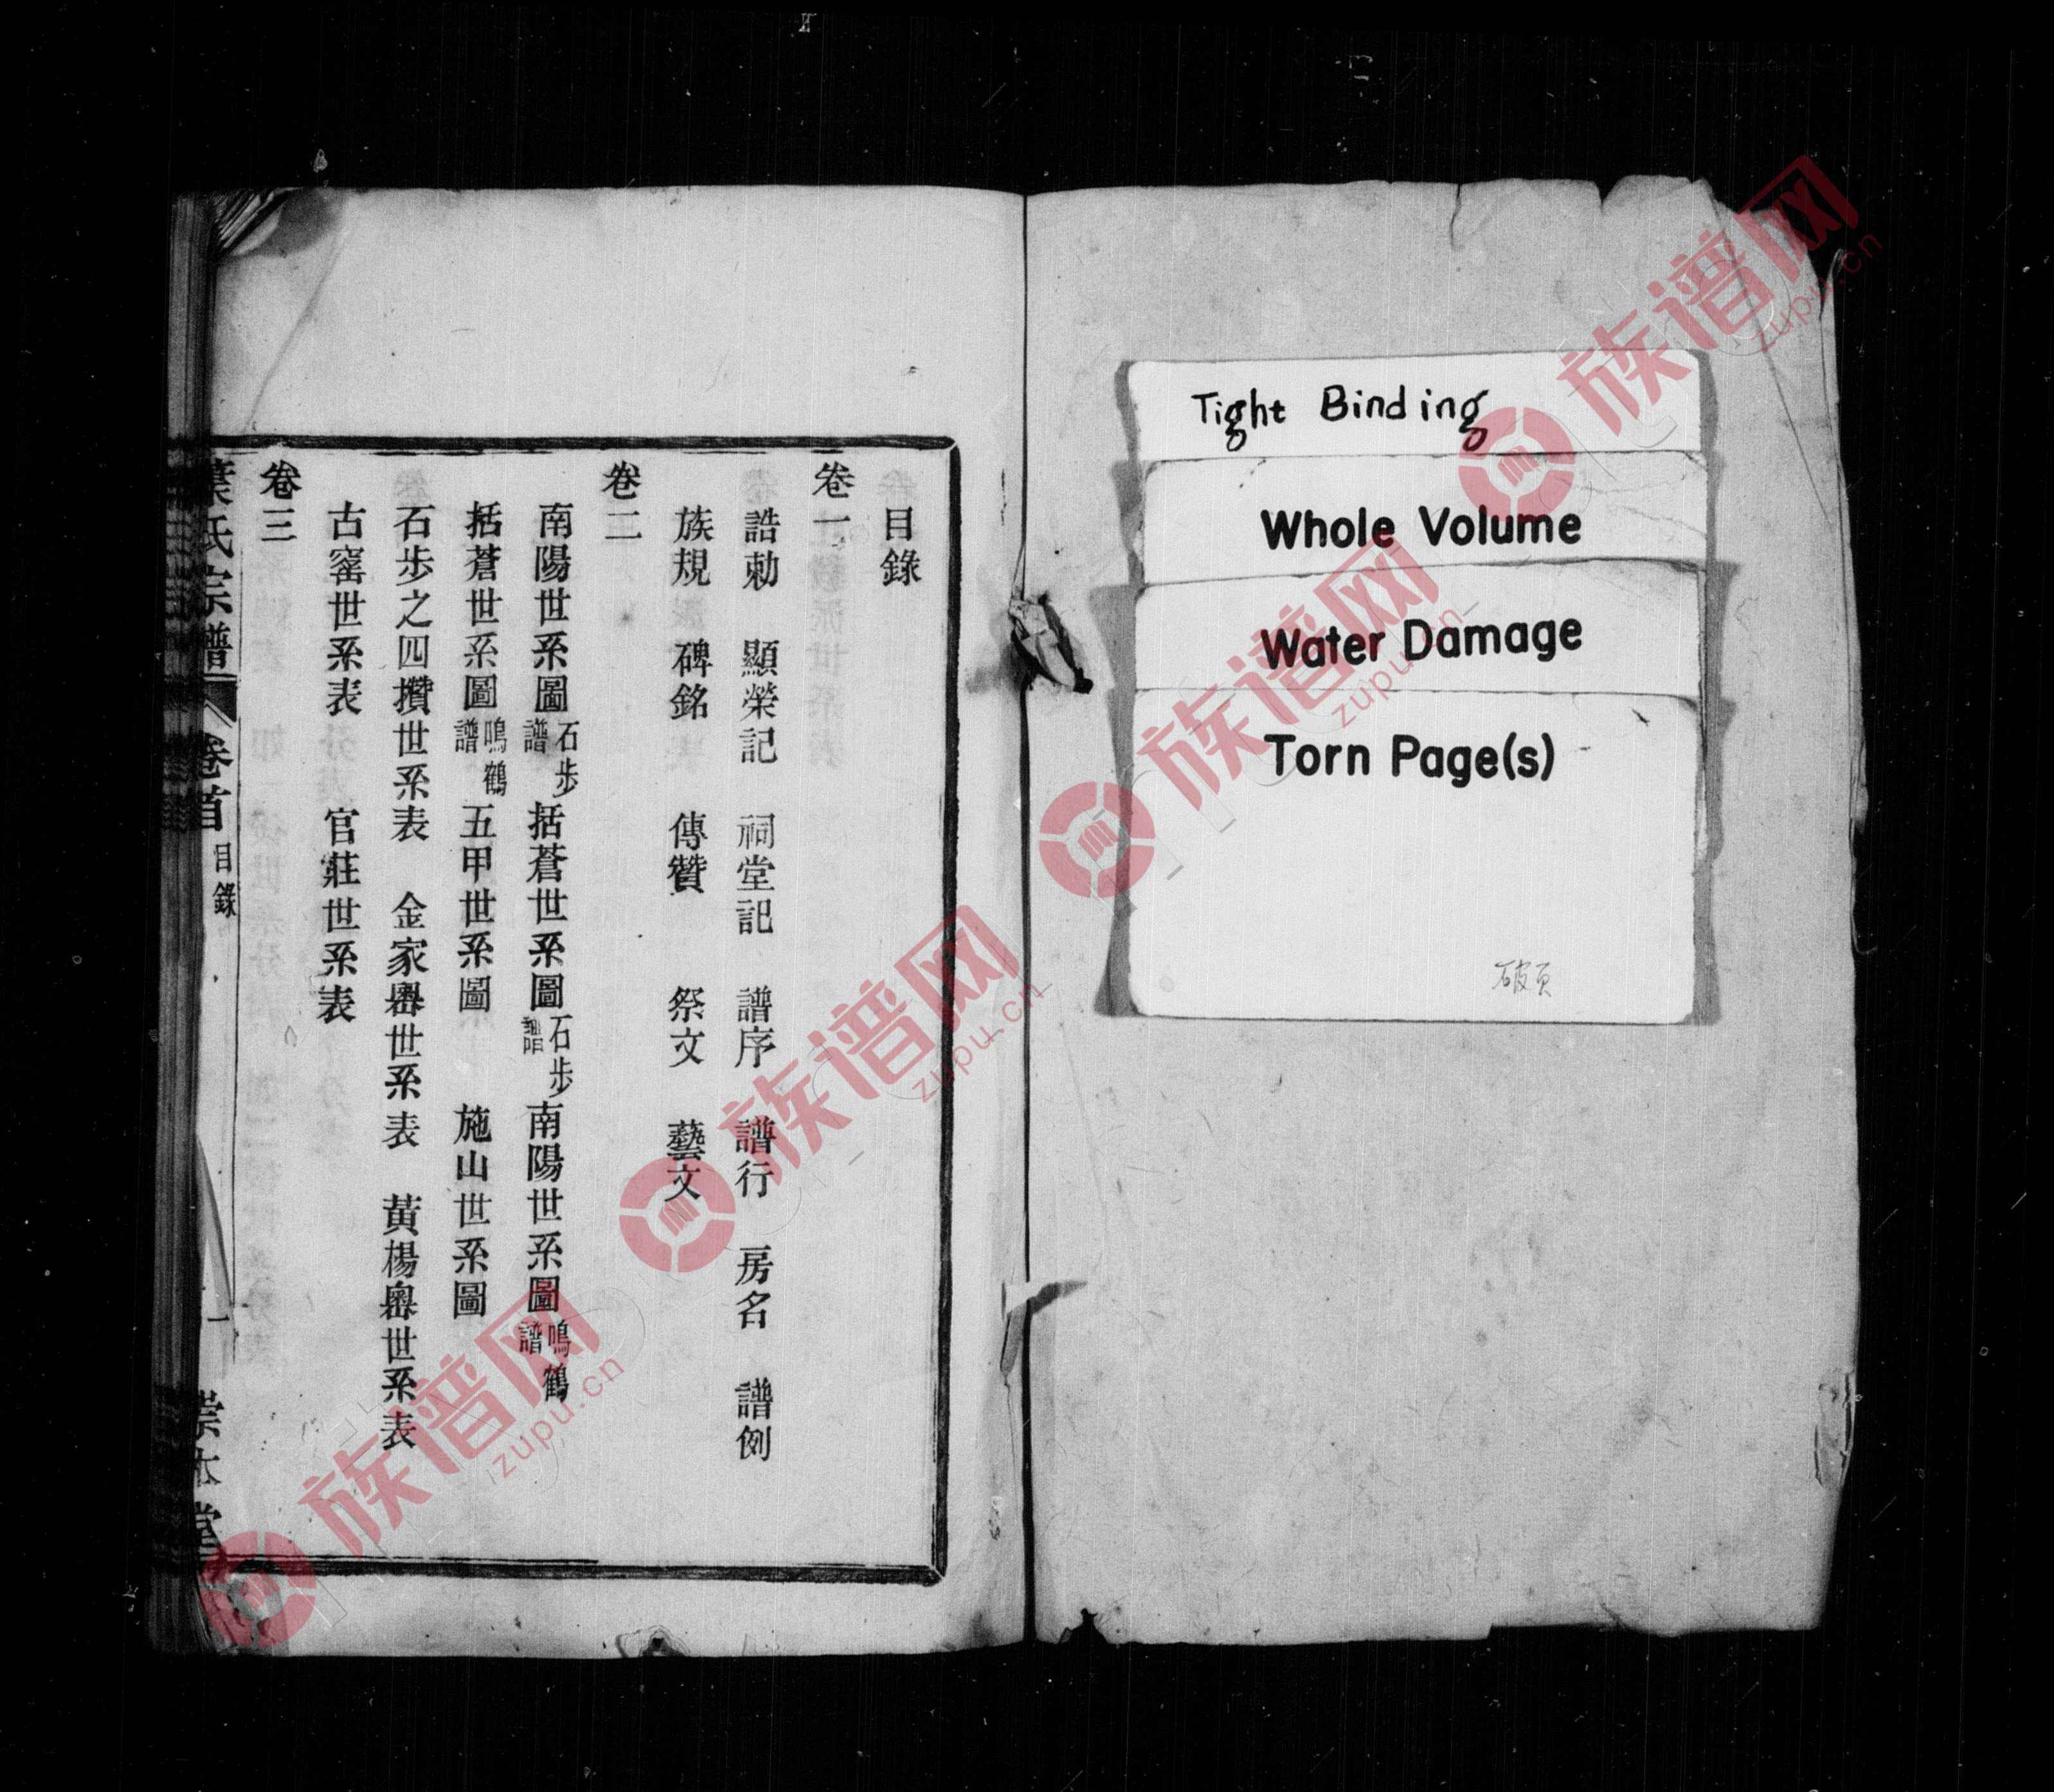 Tight Binding
Whole Volume
Water Damage
Torn Page(s)
破页
目錄
卷一
誥勅 顯榮記 祠堂記 譜序 譜行 房名 譜例
族規 碑銘 傳贊 祭文 藝文
卷二
南陽世系圖石步譜 括蒼世系圖石步譜 南陽世系圖鳴鶴譜
括蒼世系圖鳴鶴譜 五甲世系圖 施山世系圖
石步之四攢世系表 金家嶴世系表 黃楊嶴世系表
古窰世系表 官莊世系表
卷三
葉氏宗譜 卷首 目錄 一 崇本堂
族谱网
zupu.cn
族谱网
zupu.cn
族谱网
zupu.cn
族谱网
zupu.cn